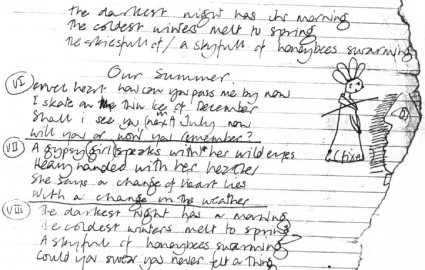 The darkest night has its morning
The coldest winters melt to spring
The skies full of / a skyful of honeybees swarming
Our Summer.
VI
cruel heart how can you pass me by now
I skate on the thin ice of December
Shall I see you (next) in July now
will you or won't you remember?
VII
A gypsy girl speaks with her wild eyes
Heavy handed with her heather
She says a change of heart lies
With a change in the weather
VIII
The darkest night has a morning
The coldest winters melt to spring
A skyful of honeybees swarming
Could you swear you never felt a thing